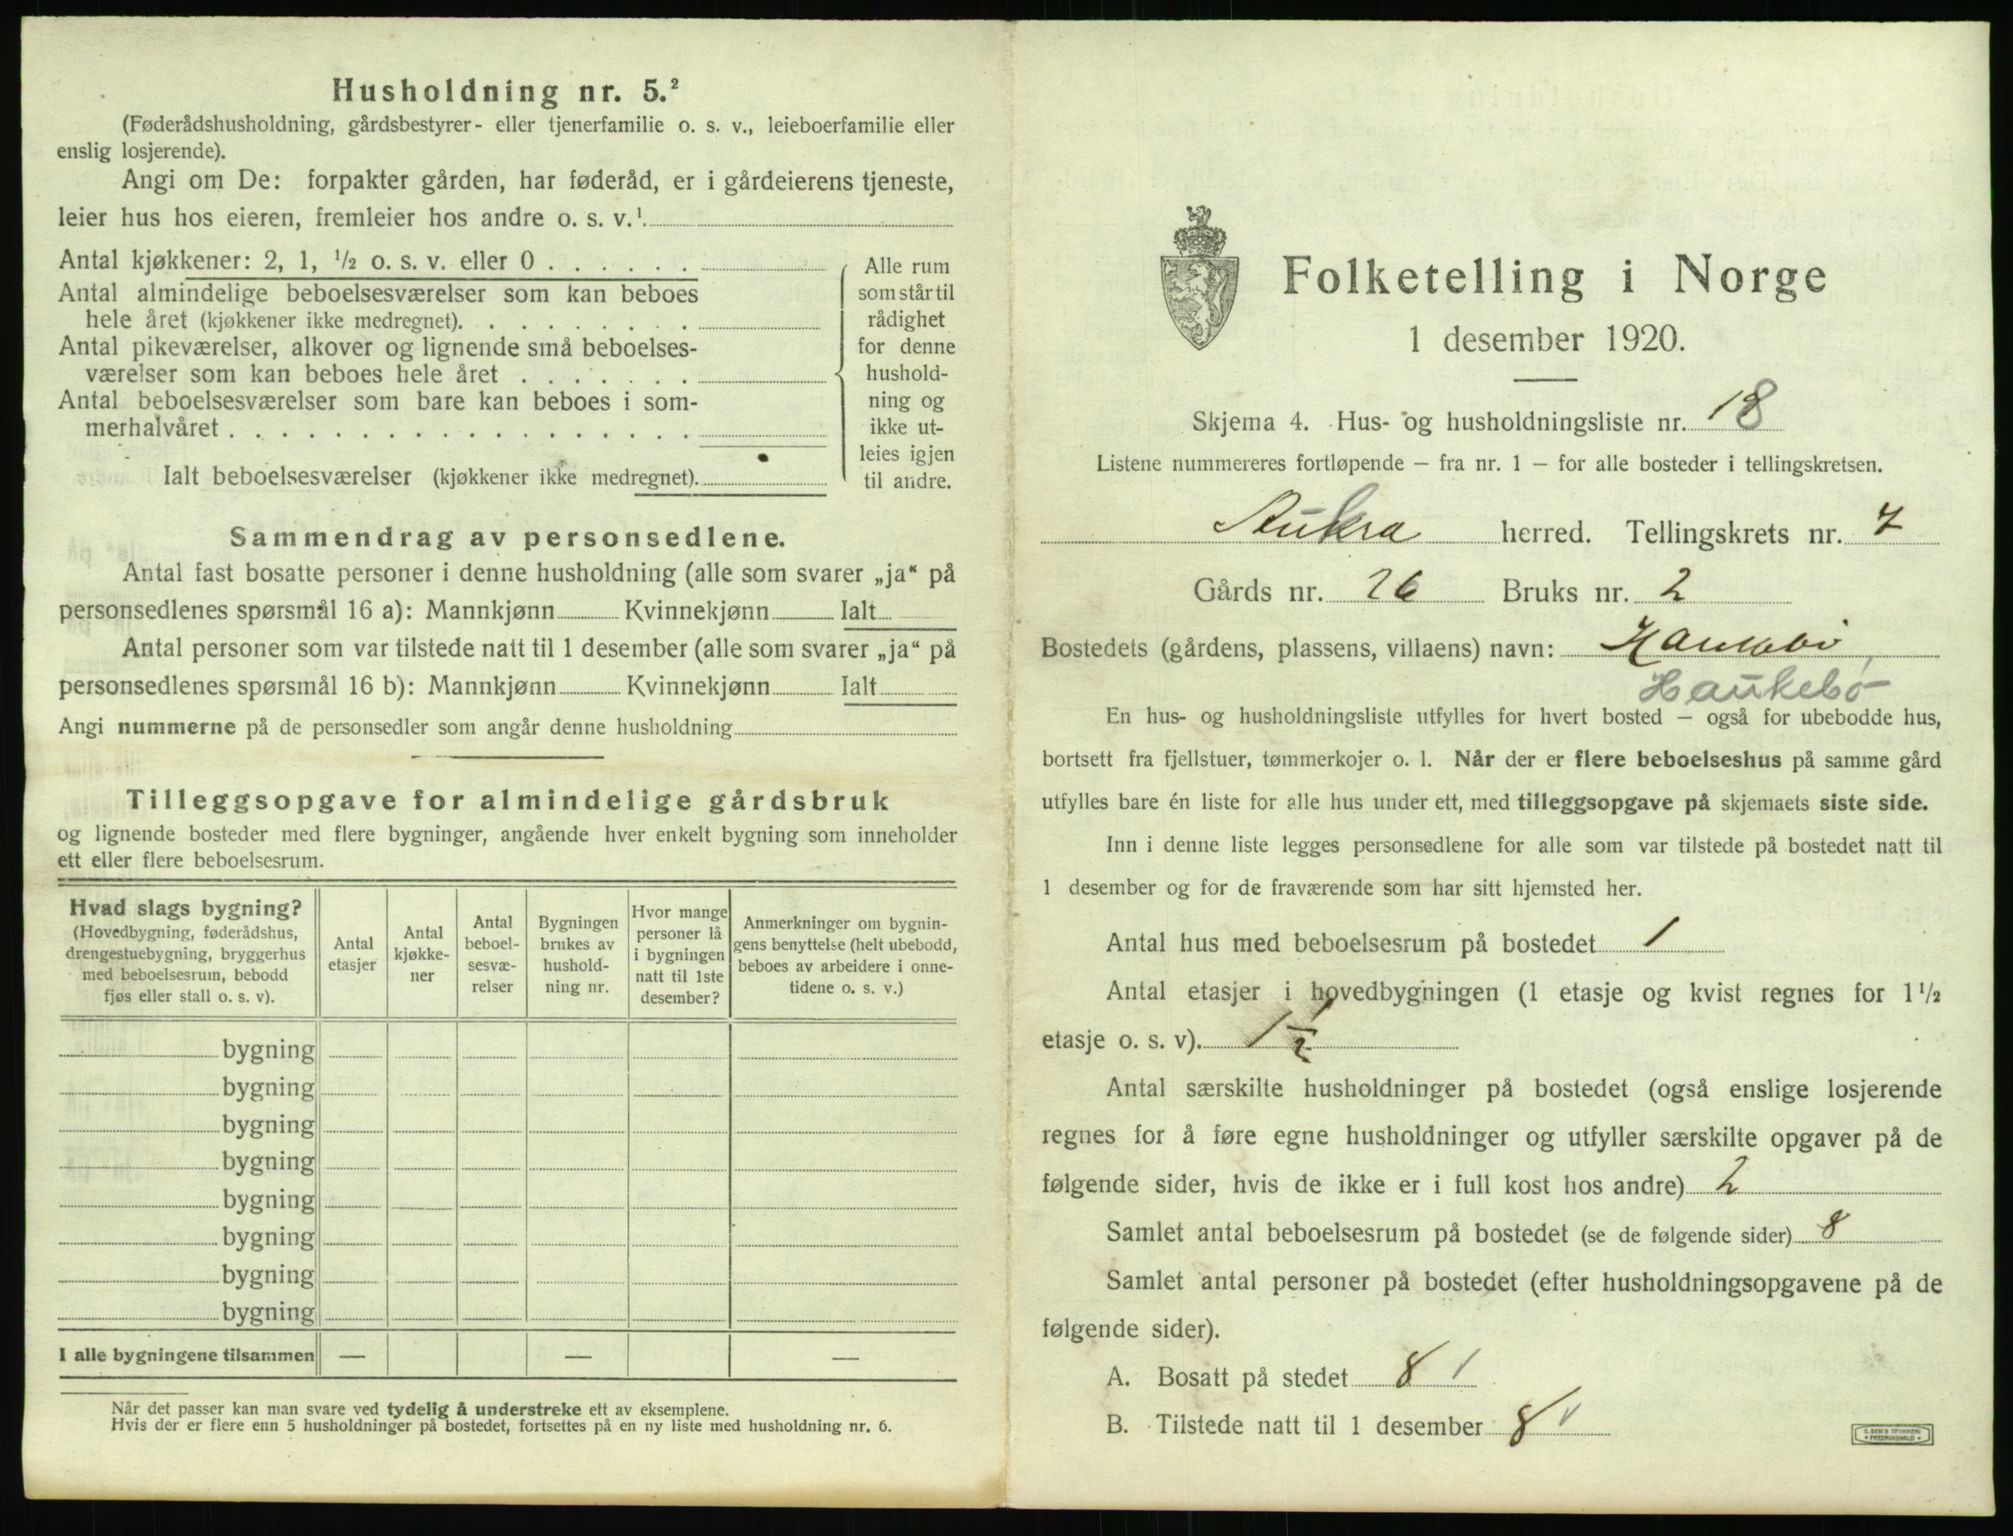 Husholdning nr. 5.²
(Føderådshusholdning, gårdsbestyrer- eller tjenerfamilie o. s. v., leieboerfamilie eller
enslig losjerende).
Angi om De: forpakter gården, har føderåd, er i gårdeierens tjeneste,
leier hus hos eieren, fremleier hos andre o. s. v.¹
Antal kjøkkener: 2, 1, ½ o. s. v. eller 0 . . . . . .
Antal almindelige beboelsesværelser som kan beboes
hele året (kjøkkener ikke medregnet). . . . . . . . .
Antal pikeværelser, alkover og lignende små beboelses-
værelser som kan beboes hele året . . . . . . .
Antal beboelsesværelser som bare kan beboes i som-
merhalvåret . . . . . . . . . . . . . . . . . .
Ialt beboelsesværelser (kjøkkener ikke medregnet).
Alle rum
som står til
rådighet
for denne
hushold-
ning og
ikke ut-
leies igjen
til andre.
Sammendrag av personsedlene.
Antal fast bosatte personer i denne husholdning (alle som svarer „ja“ på
personsedlenes spørsmål 16 a): Mannkjønn Kvinnekjønn Ialt
Antal personer som var tilstede natt til 1 desember (alle som svarer „ja“ på
personsedlenes spørsmål 16 b): Mannkjønn Kvinnekjønn Ialt
Angi nummerne på de personsedler som angår denne husholdning
Tilleggsopgave for almindelige gårdsbruk
og lignende bosteder med flere bygninger, angående hver enkelt bygning som inneholder
ett eller flere beboelsesrum.
Hvad slags bygning?
(Hovedbygning, føderådshus,
drengestuebygning, bryggerhus
med beboelsesrum, bebodd
fjøs eller stall o. s. v).
Antal
etasjer
Antal
kjøkke-
ner
Antal
beboel-
sesvæ-
relser
Bygningen
brukes av
hushold-
ning nr.
Hvor mange
personer lå
i bygningen
natt til 1ste
desember?
Anmerkninger om bygnin-
gens benyttelse (helt ubebodd,
beboes av arbeidere i onne-
tidene o. s. v.)
bygning
bygning
bygning
bygning
bygning
bygning
bygning
bygning
I alle bygningene tilsammen — — —
Når det passer kan man svare ved tydelig å understreke ett av eksemplene.
Hvis der er flere enn 5 husholdninger på bostedet, fortsettes på en ny liste med husholdning nr. 6.
Folketelling i Norge
1 desember 1920.
Skjema 4. Hus- og husholdningsliste nr. 18
Listene nummereres fortløpende — fra nr. 1 — for alle bosteder i tellingskretsen.
Aukra herred. Tellingskrets nr. 7
Gårds nr. 26 Bruks nr. 2
Bostedets (gårdens, plassens, villaens) navn:
Haukebø
En hus- og husholdningsliste utfylles for hvert bosted — også for ubebodde hus,
bortsett fra fjellstuer, tømmerkojer o. l. Når der er flere beboelseshus på samme gård
utfylles bare én liste for alle hus under ett, med tilleggsopgave på skjemaets siste side.
Inn i denne liste legges personsedlene for alle som var tilstede på bostedet natt til
1 desember og for de fraværende som har sitt hjemsted her.
Antal hus med beboelsesrum på bostedet 1
Antal etasjer i hovedbygningen (1 etasje og kvist regnes for 1 ½
etasje o. s. v). 1 ½
Antal særskilte husholdninger på bostedet (også enslige losjerende
regnes for å føre egne husholdninger og utfyller særskilte opgaver på de
følgende sider, hvis de ikke er i full kost hos andre) 2
Samlet antal beboelsesrum på bostedet (se de følgende sider) 8
Samlet antal personer på bostedet (efter husholdningsopgavene på de
følgende sider).
A. Bosatt på stedet 8
B. Tilstede natt til 1 desember 8